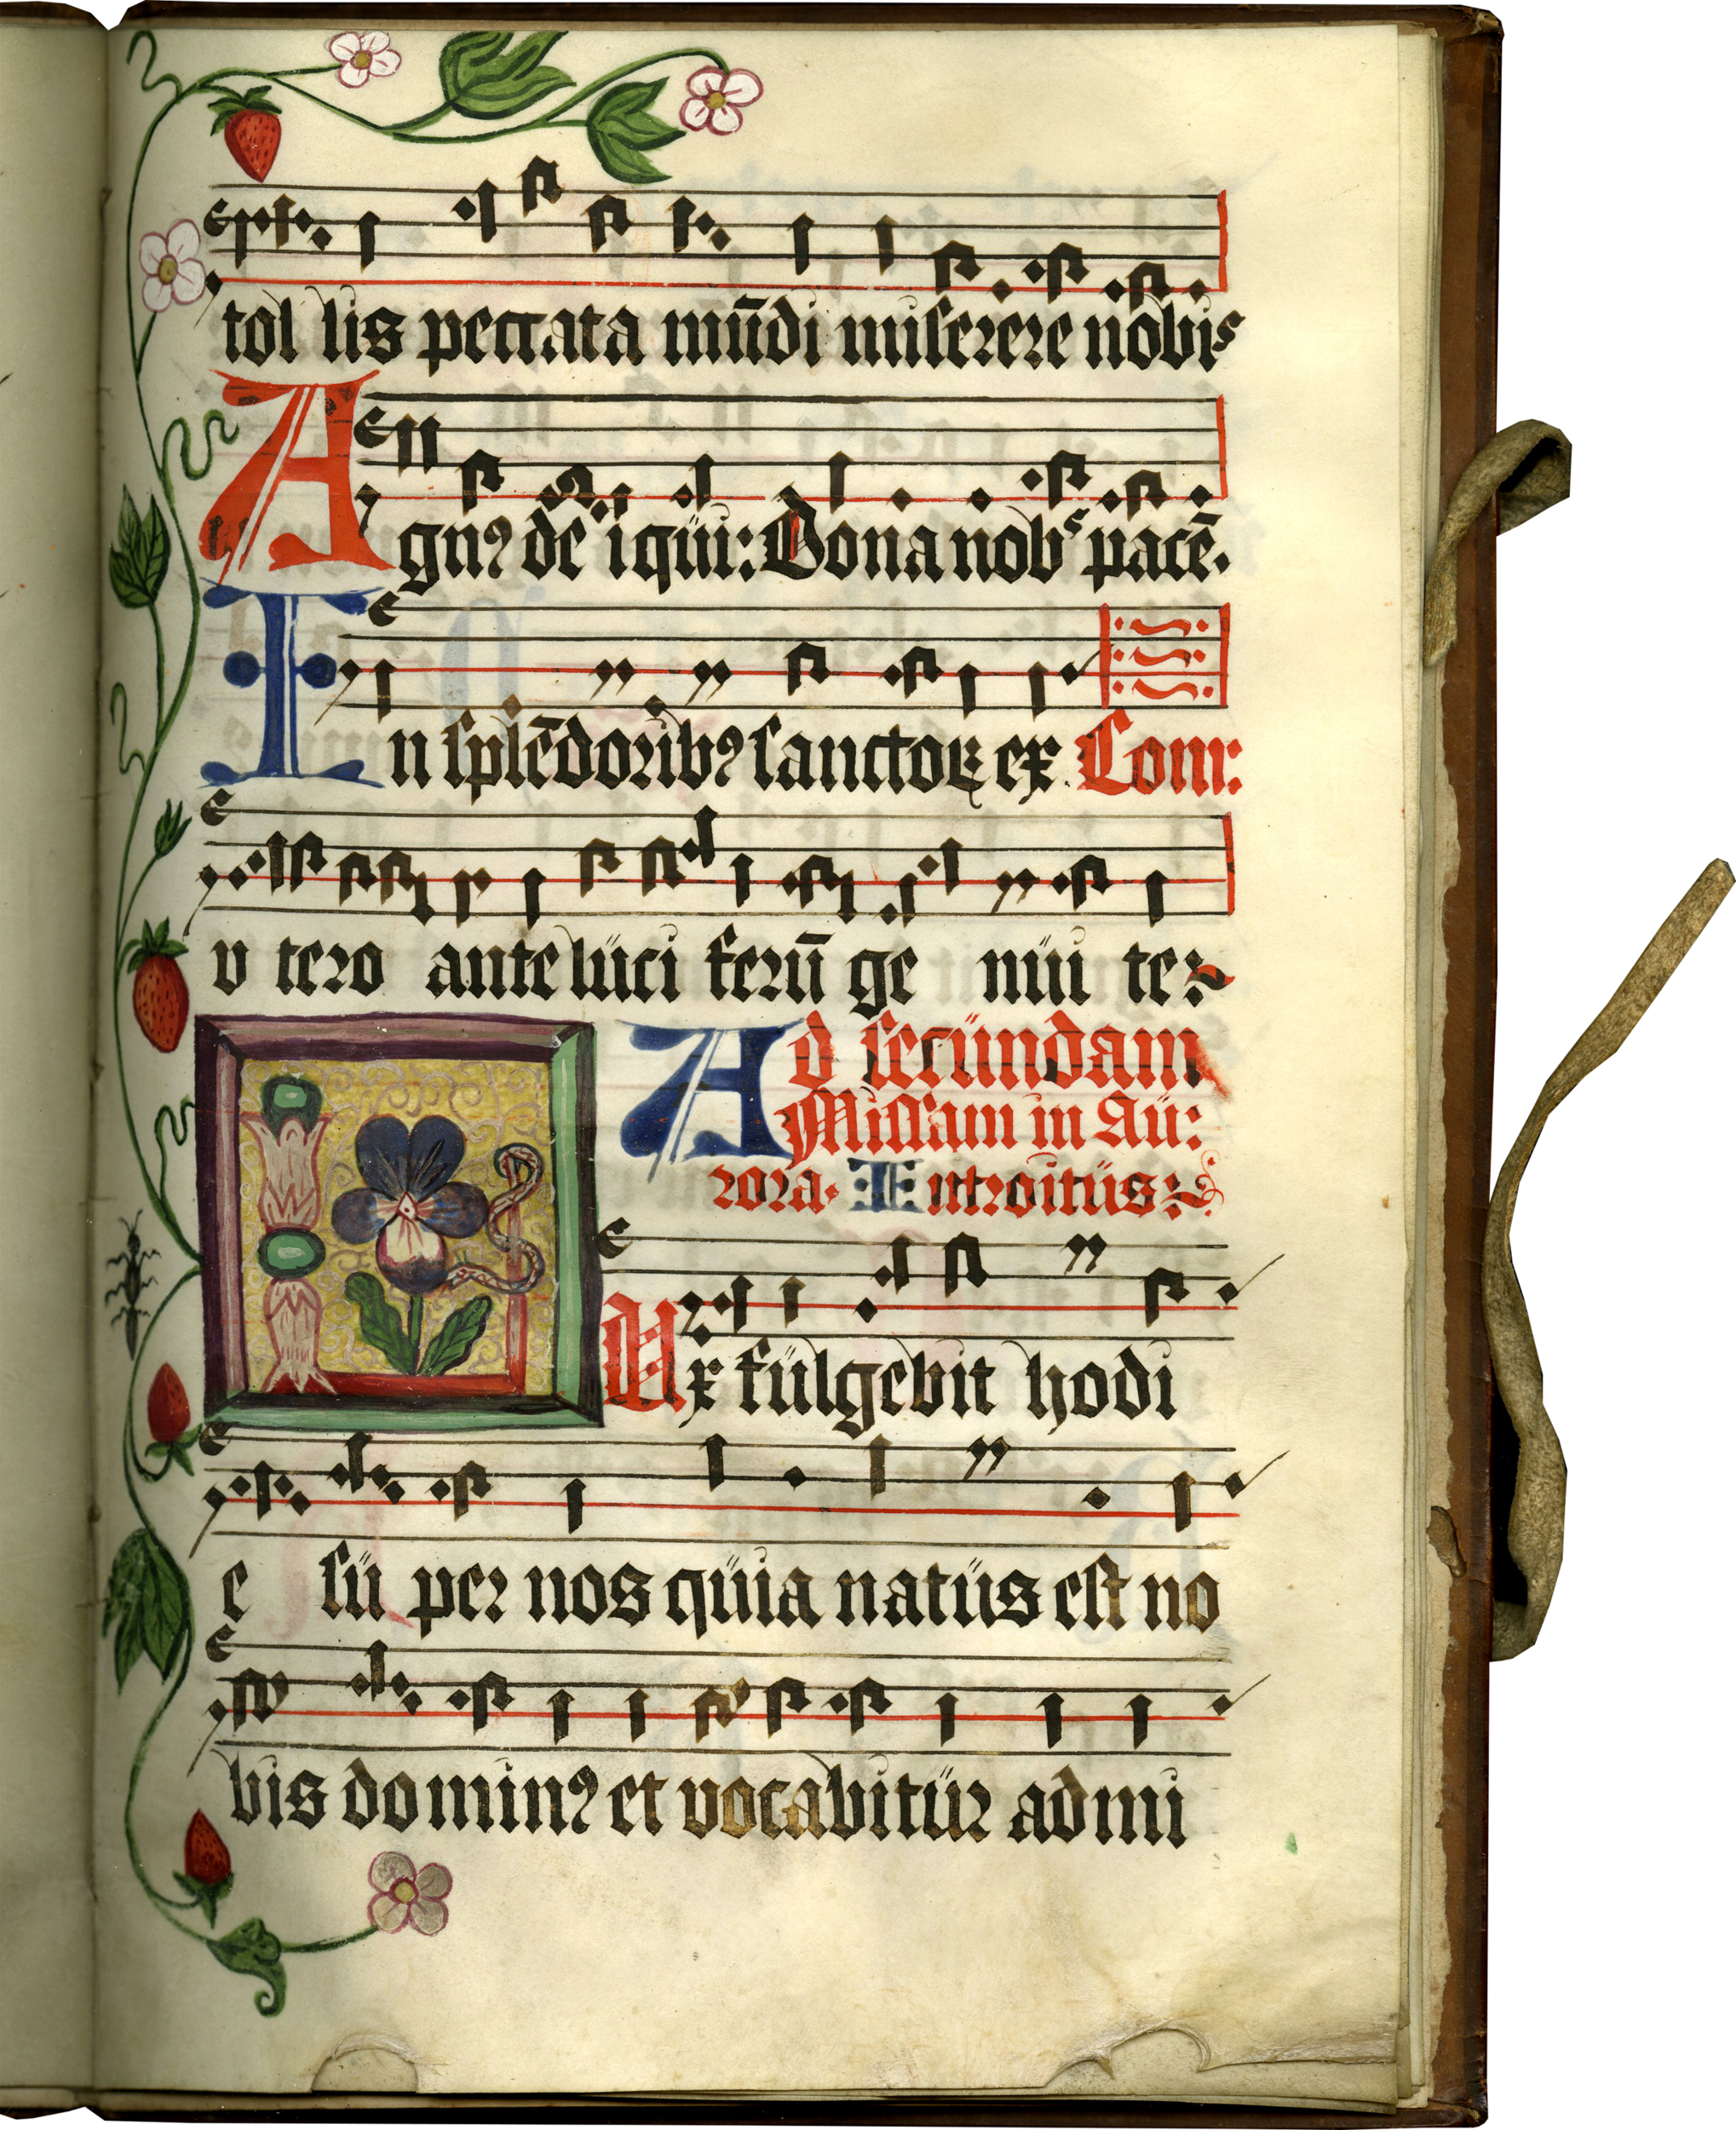 tol lis peccata mūdi miserere nobis
Agnꝯ dē i qüi: Dona nobˢ pacē.
In splēdoribꝯ sanctoꝝ ex Com:
v tero ante lüci ferū ge nüi te:
Ad secündam
Missam in Aü:
rora. Introitüs:
LVx fülgebit hodi
e sü per nos qüia natüs est no
bis do minꝯ et vocabitür ad mi